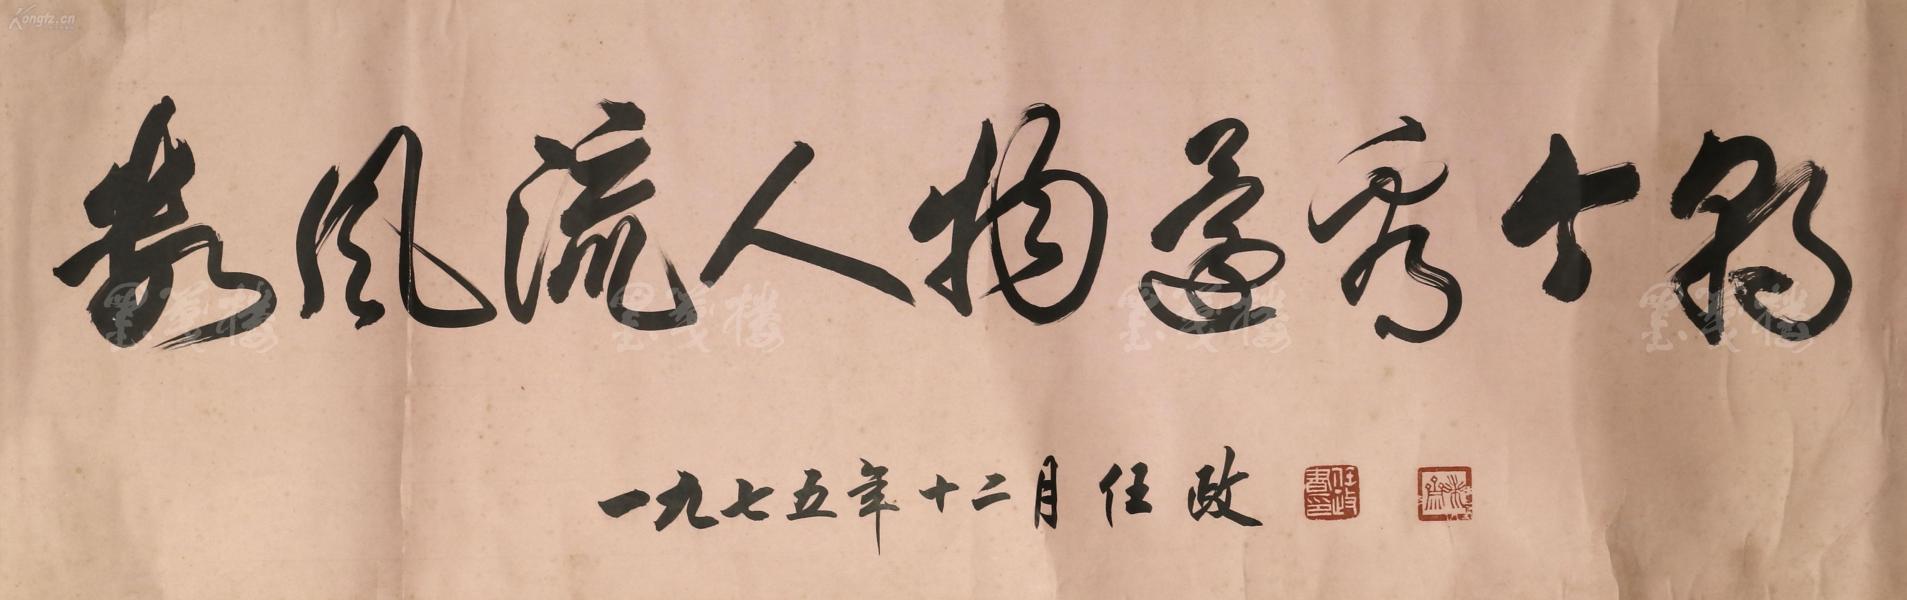 Kongfz.cn
数风流人物还看今朝
墨笺楼 墨笺楼 墨笺楼 墨笺楼
一九七五年十二月 任政
任政書印